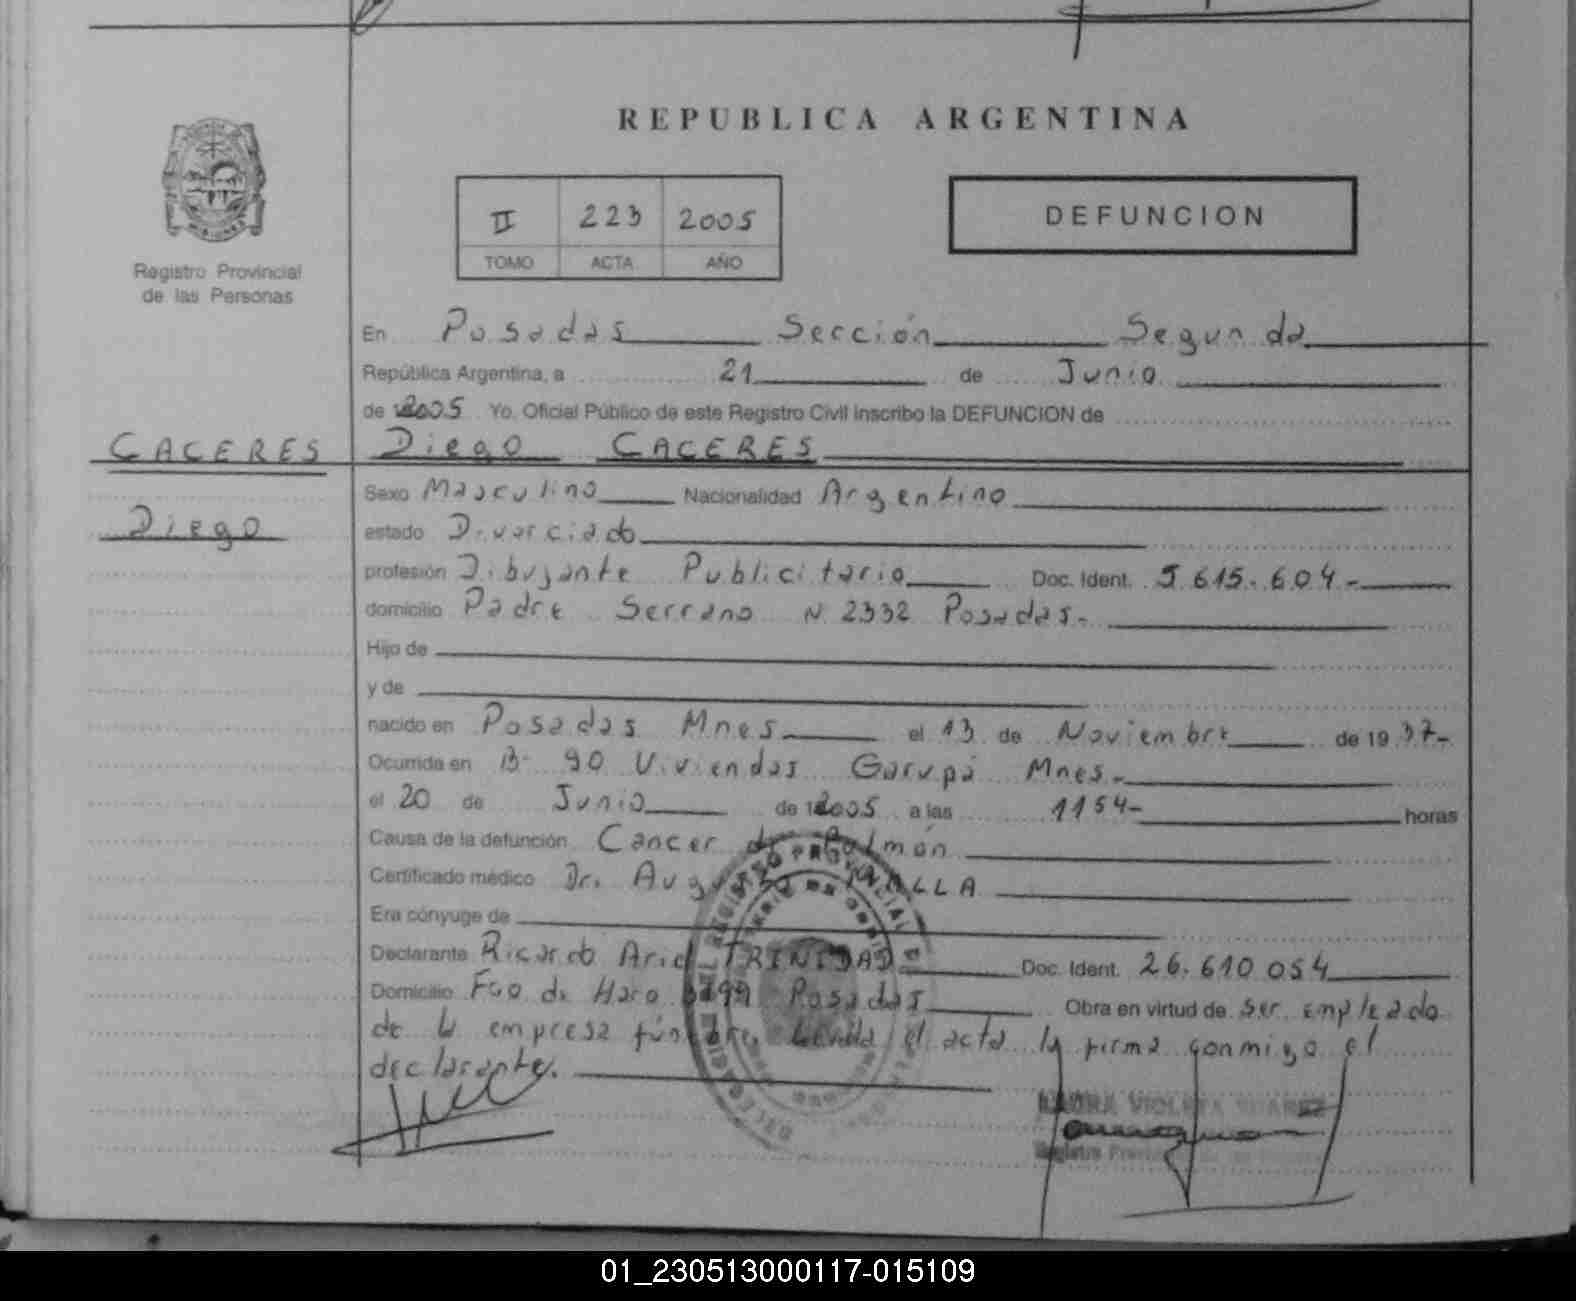 REPUBLICA ARGENTINA
MISIONES
Registro Provincial
de las Personas
II 223 2005
TOMO ACTA AÑO
DEFUNCION
En Posadas Sección Segunda
República Argentina, a 21 de Junio
de 2005 Yo, Oficial Público de este Registro Civil inscribo la DEFUNCION de
CACERES Diego CACERES
Sexo Masculino Nacionalidad Argentino
Diego
estado Divorciado
profesión Dibujante Publicitario Doc. Ident. 5.615.604.-
domicilio Padre Serrano N 2332 Posadas.-
Hijo de
y de
nacido en Posadas Mnes el 13 de Noviembre de 19 37-
Ocurrida en B- 90 Viviendas Garupá Mnes.-
el 20 de Junio de 2005 a las 1154- horas
Causa de la defunción Cancer de Pulmón
Certificado médico Dr.
Era cónyuge de
Declarante Ricardo Ariel TRINIDAD Doc. Ident. 26.610 054
Domicilio Fco de Haro Posadas Obra en virtud de ser empleado
de la empresa fúnebre. el acta la firma conmigo el
declarante.
LAURA VIOLETA SUAREZ
01_230513000117-015109